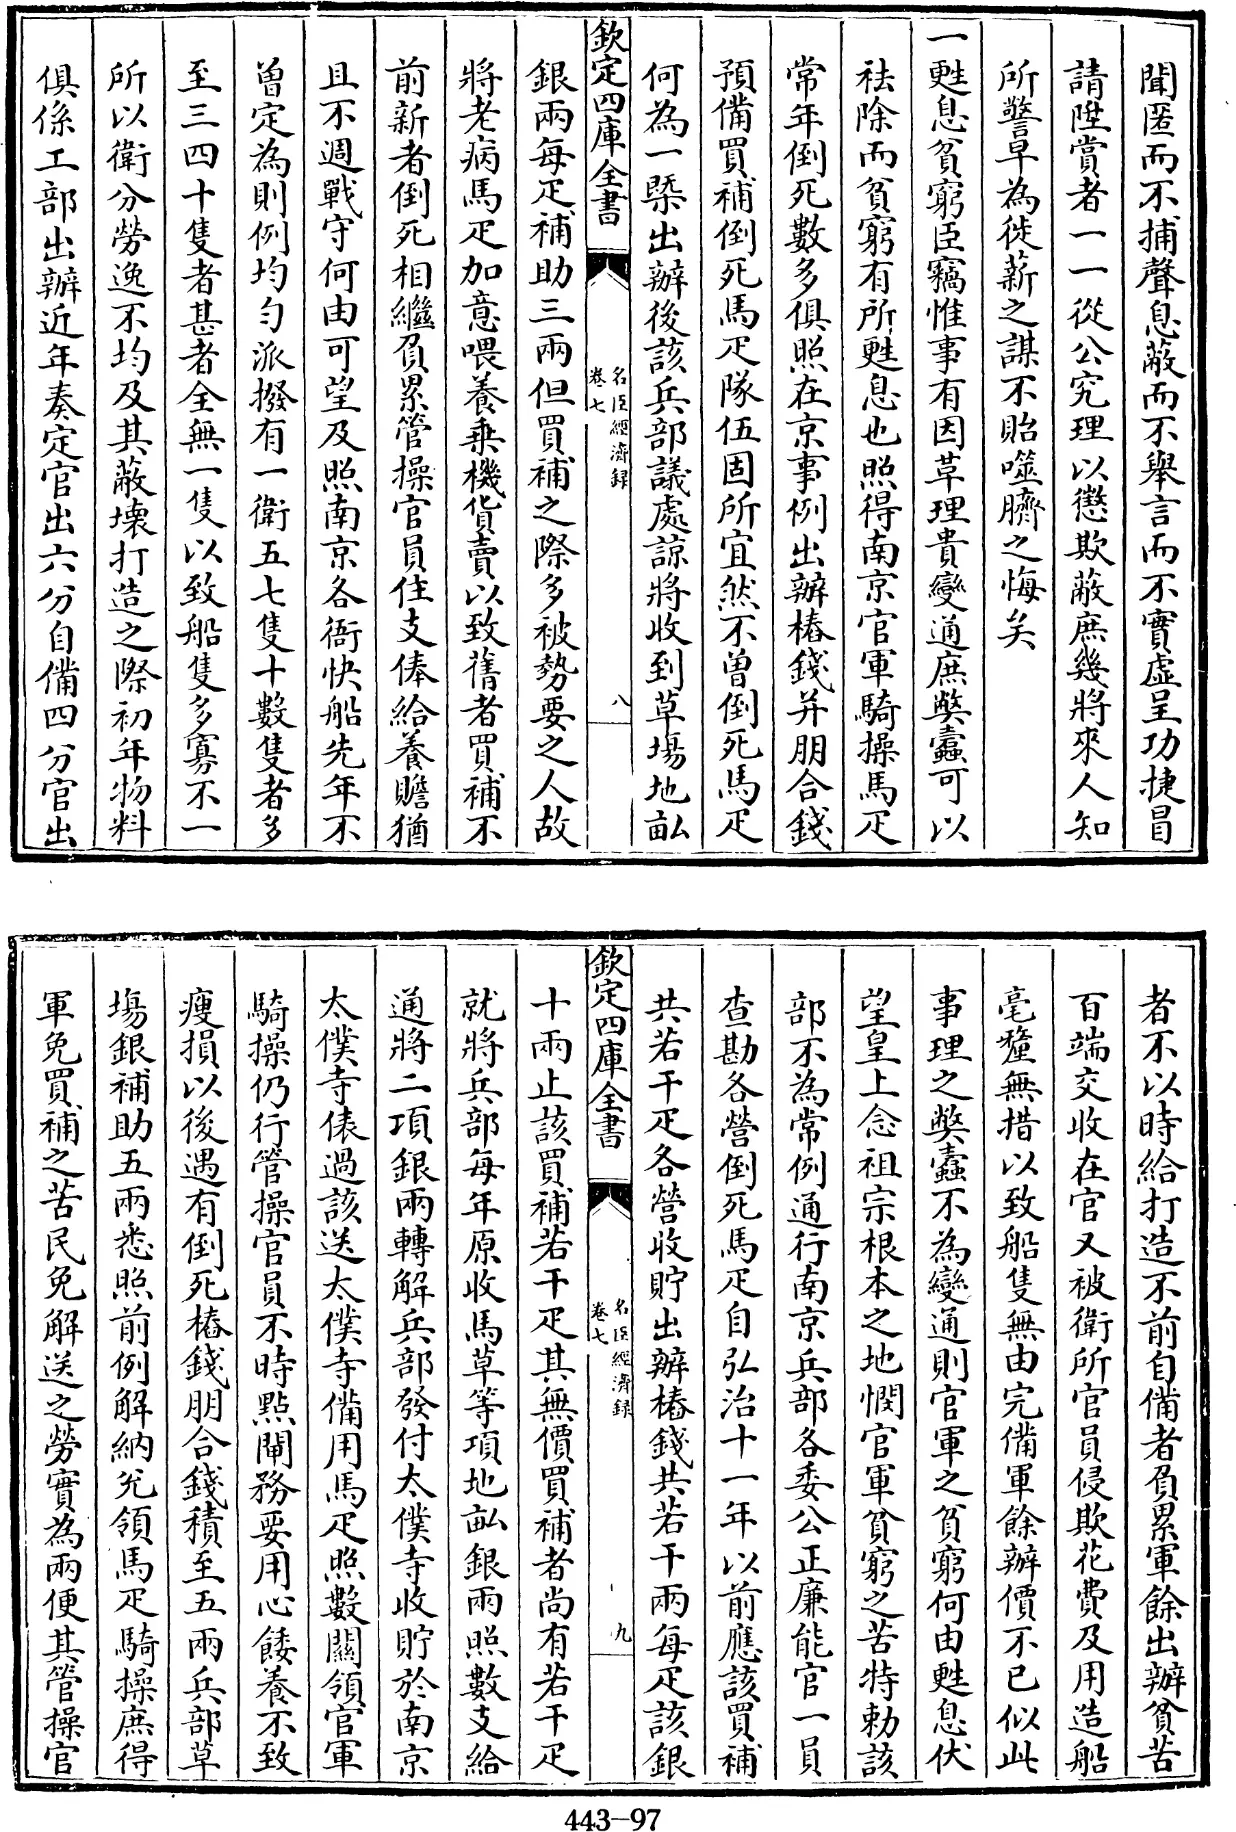 聞匿而不捕聲息蔽而不舉言而不實虛呈功捷冐
請陞賞者一一從公究理以懲欺蔽庶幾將來人知
所警早為徙薪之謀不貽噬臍之悔矣
一甦息貧窮臣竊惟事有因革理貴變通庶獘蠧可以
祛除而貧窮有所甦息也照得南京官軍騎操馬疋
常年倒死數多俱照在京事例出辦樁錢并朋合錢
預備買補倒死馬疋隊伍固所宜然不曾倒死馬疋
何為一槩出辦後該兵部議處諒將收到草塲地畝
欽定四庫全書
名臣經濟録
卷七
八
銀兩每疋補助三兩但買補之際多被勢要之人故
將老病馬疋加意喂養乗機貨賣以致舊者買補不
前新者倒死相繼負累管操官員住支俸給養贍猶
且不週戰守何由可望及照南京各衙快船先年不
曽定為則例均勻派撥有一衛五七隻十數隻者多
至三四十隻者甚者全無一隻以致船隻多寡不一
所以衛分勞逸不均及其蔽壊打造之際初年物料
俱係工部出辦近年奏定官出六分自備四分官出
者不以時給打造不前自備者負累軍餘出辦貧苦
百端交收在官又被衛所官員侵欺花費及用造船
毫釐無措以致船隻無由完備軍餘辦價不已似此
事理之獘蠧不為變通則官軍之貧窮何由甦息伏
望皇上念祖宗根本之地憫官軍貧窮之苦特勅該
部不為常例通行南京兵部各委公正廉能官一員
查勘各營倒死馬疋自弘治十一年以前應該買補
共若干疋各營收貯出辦樁錢共若干兩每疋該銀
欽定四庫全書
名臣經濟録
卷七
九
十兩止該買補若干疋其無價買補者尚有若干疋
就將兵部每年原收馬草等項地畝銀兩照數支給
通將二項銀兩轉解兵部發付太僕寺收貯於南京
太僕寺俵過該送太僕寺備用馬疋照數關領官軍
騎操仍行管操官員不時點閘務要用心餧養不致
瘦損以後遇有倒死樁錢朋合錢積至五兩兵部草
塲銀補助五兩悉照前例解納兊領馬疋騎操庶得
軍免買補之苦民免解送之勞實為兩便其管操官
443-97